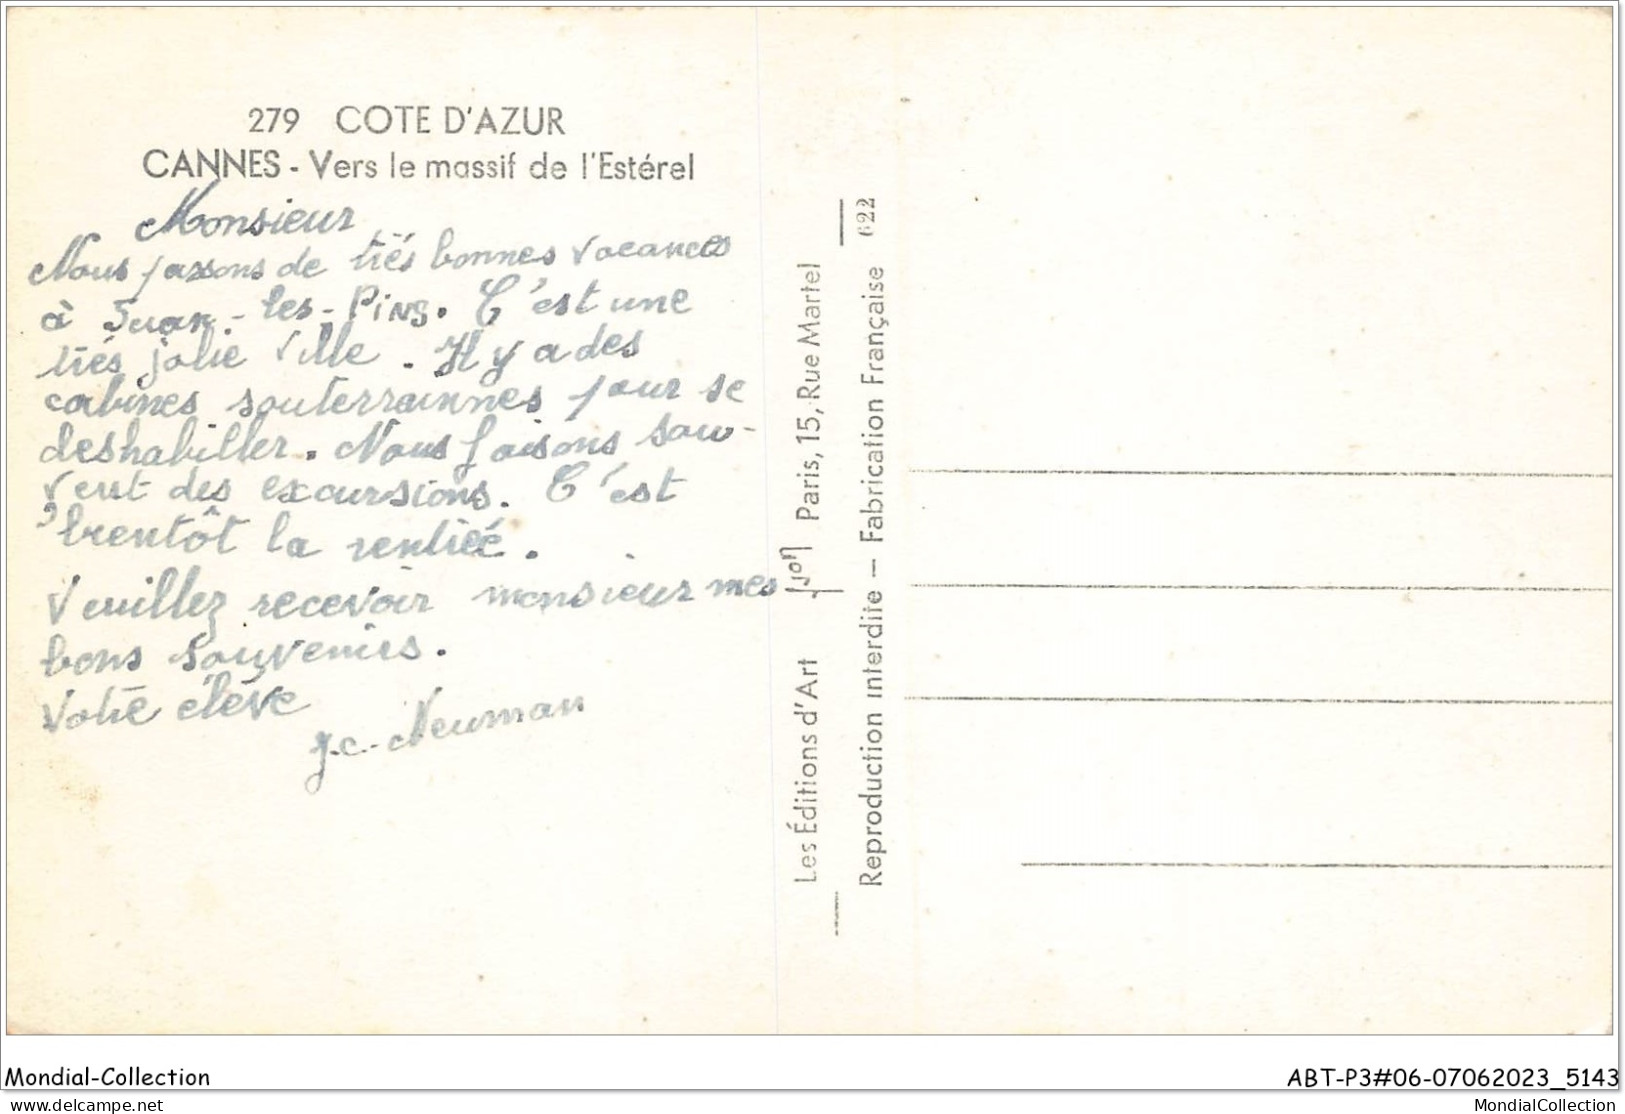 279 COTE D'AZUR
CANNES - Vers le massif de l'Estérel
Monsieur
Nous passons de très bonnes vacances
à Juan-les-Pins. C'est une
très jolie ville. Il y a des
cabines souterrainnes pour se
deshabiller. Nous faisons sou-
vent des excursions. C'est
bientôt la rentrée.
Veuillez recevoir monsieur mes
bons souvenirs.
Votre élève
J.C. Neuman
Les Éditions d'Art Yvon Paris, 15, Rue Martel
Reproduction interdite — Fabrication Française 622
Mondial-Collection
ABT-P3#06-07062023_5143
delcampe.net
MondialCollection